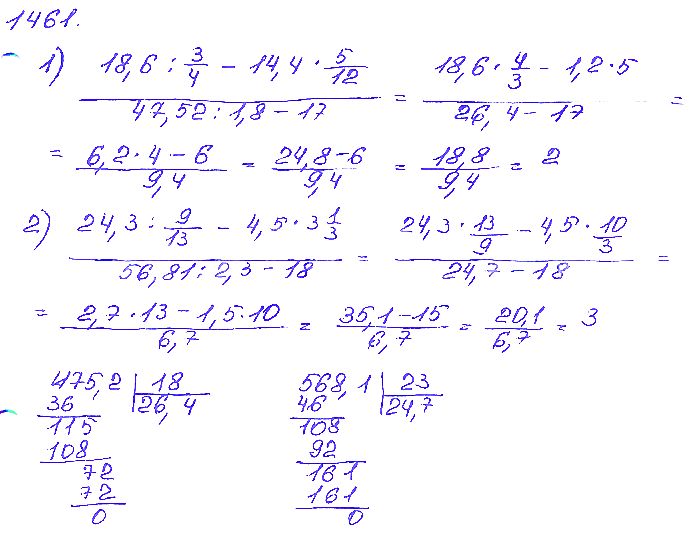 1461.
1) (18,6 : 3/4 − 14,4 · 5/12) / (47,52 : 1,8 − 17) = (18,6 · 4/3 − 1,2 · 5) / (26,4 − 17) =
= (6,2 · 4 − 6) / 9,4 = (24,8 − 6) / 9,4 = 18,8 / 9,4 = 2
2) (24,3 : 9/13 − 4,5 · 3 1/3) / (56,81 : 2,3 − 18) = (24,3 · 13/9 − 4,5 · 10/3) / (24,7 − 18) =
= (2,7 · 13 − 1,5 · 10) / 6,7 = (35,1 − 15) / 6,7 = 20,1 / 6,7 = 3
475,2 | 18 568,1 | 23
36 26,4 46 24,7
115 108
108 92
72 161
72 161
0 0